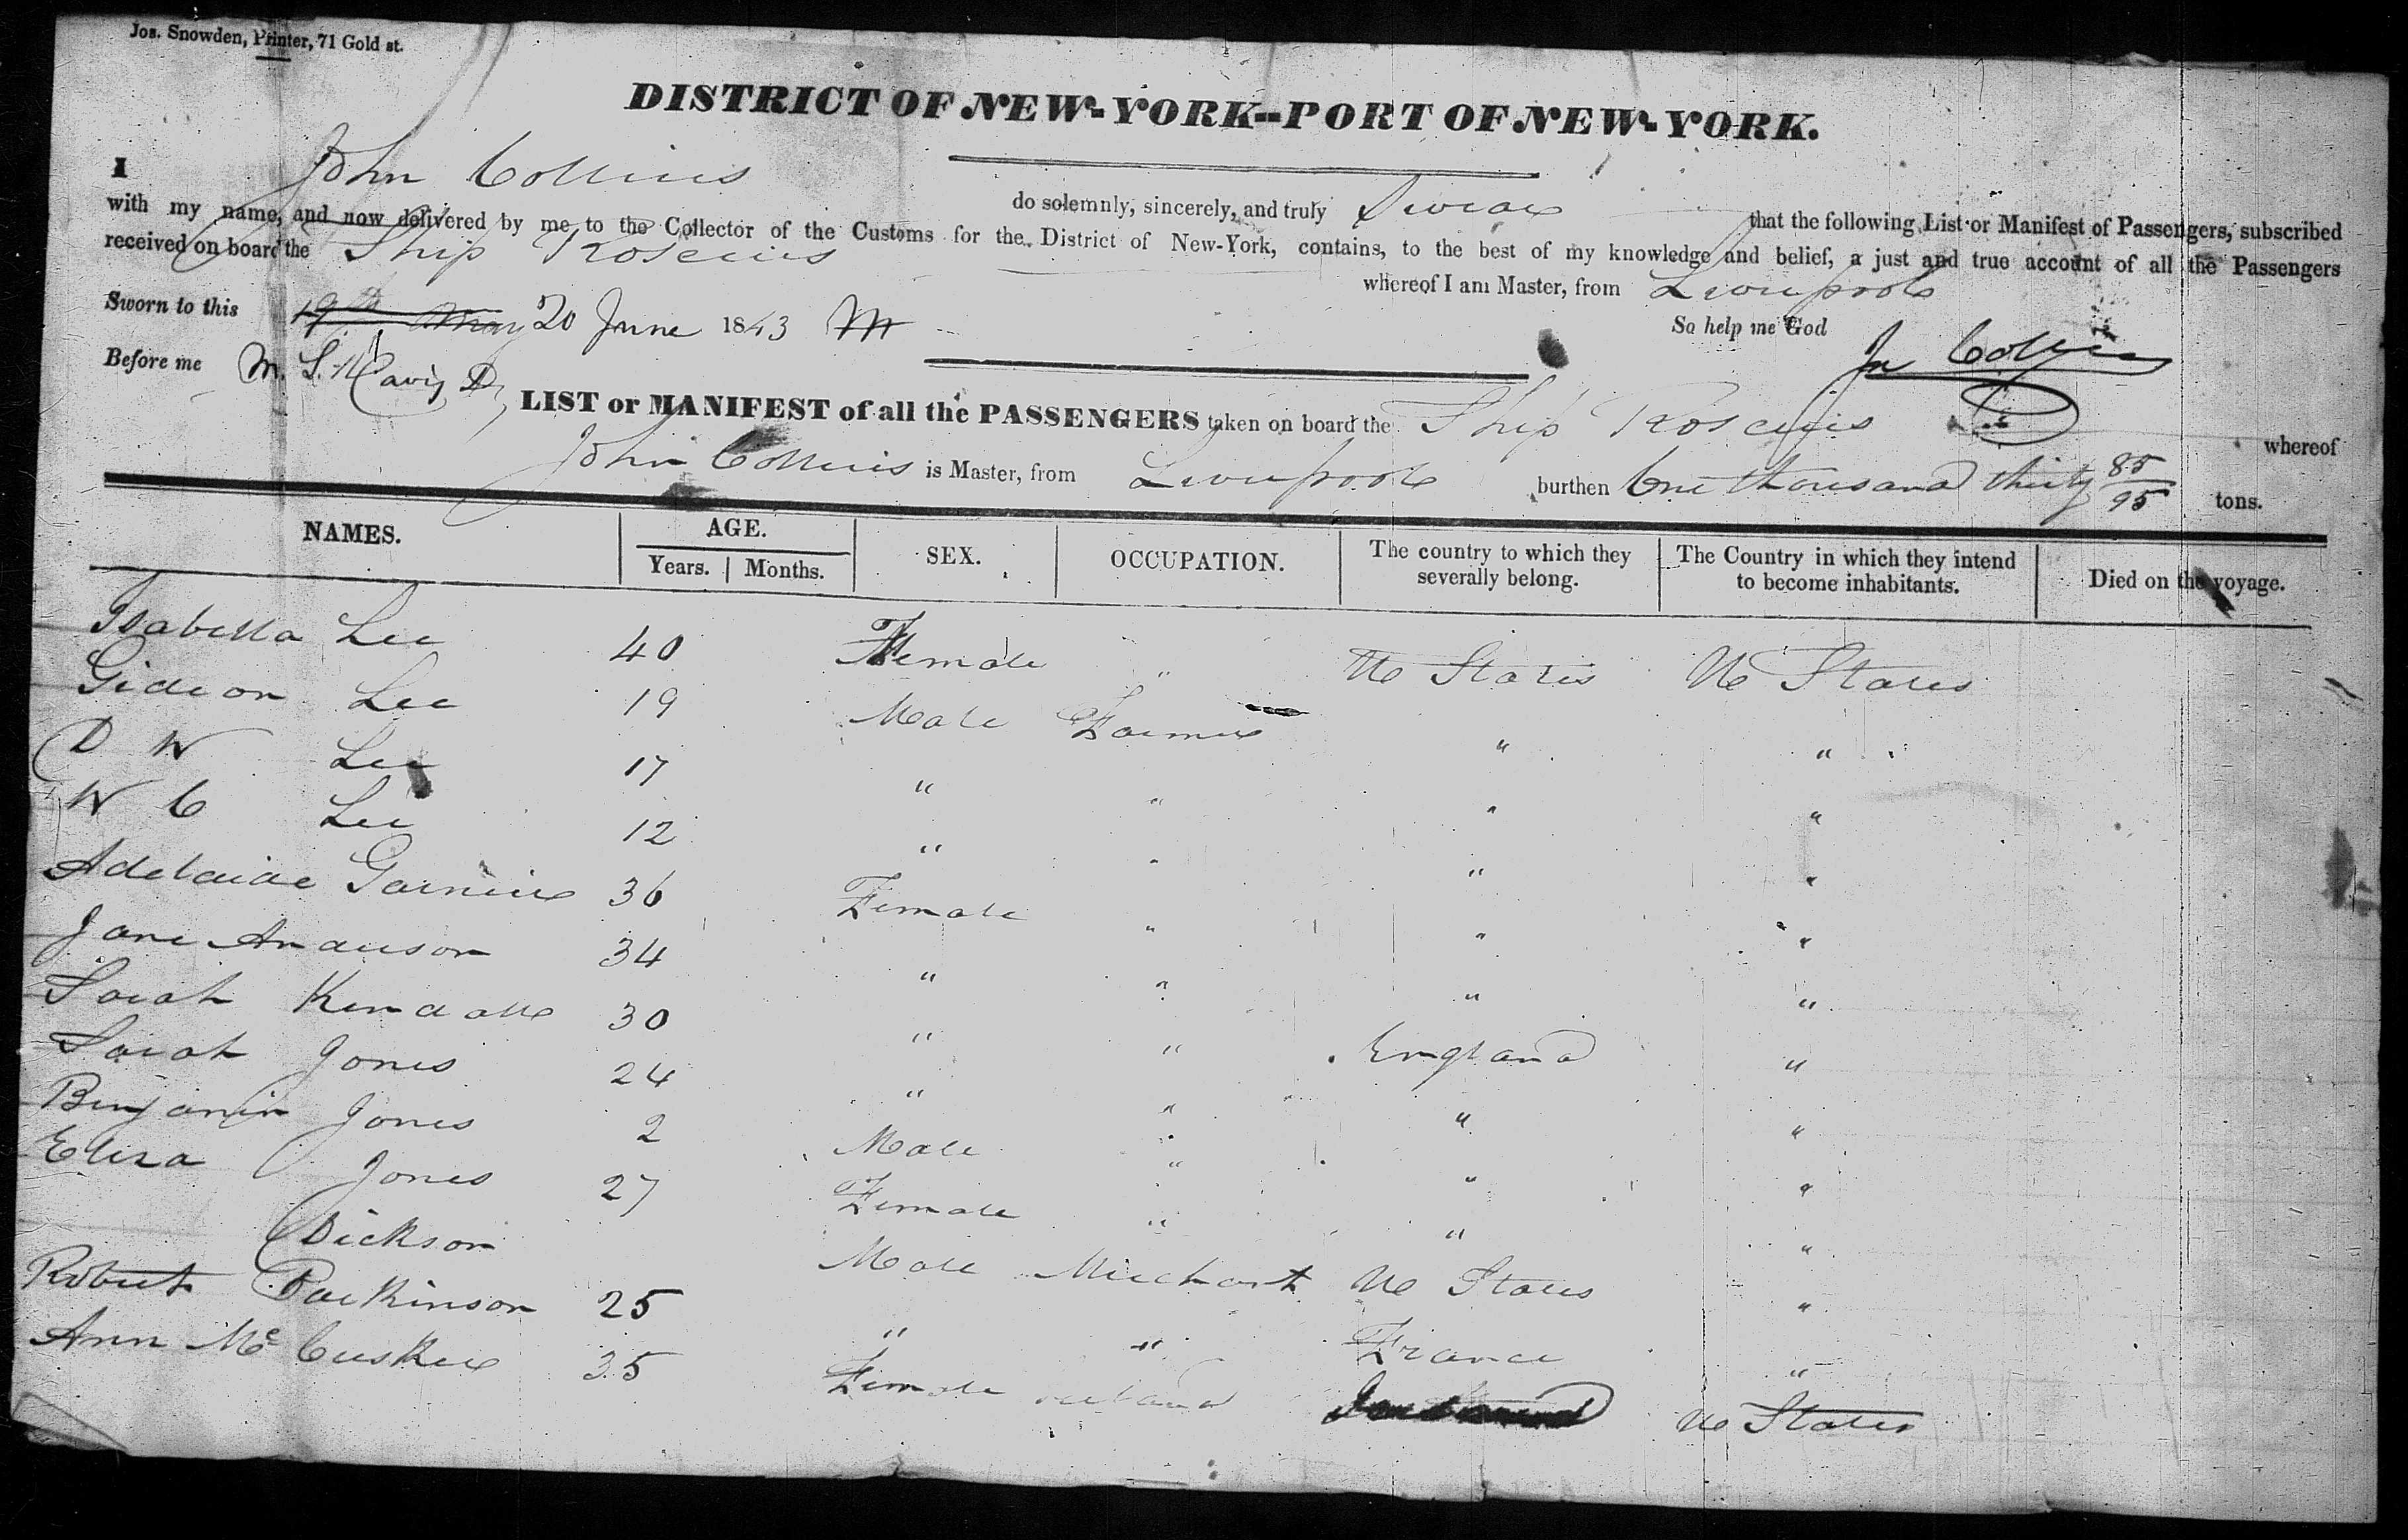 Jos. Snowden, Printer, 71 Gold st.
DISTRICT OF NEW-YORK--PORT OF NEW-YORK.
I John Collins do solemnly, sincerely, and truly Swear that the following List or Manifest of Passengers, subscribed
with my name, and now delivered by me to the Collector of the Customs for the District of New-York, contains, to the best of my knowledge and belief, a just and true account of all the Passengers
received on board the Ship Roscius whereof I am Master, from Liverpool
Sworn to this 19th May 20 June 1843 So help me God
Before me M. L. Davis Jn Collins
LIST or MANIFEST of all the PASSENGERS taken on board the Ship Roscius whereof
John Collins is Master, from Liverpool burthen One thousand thirty 85/95 tons.
NAMES. AGE. Years. Months. SEX. OCCUPATION. The country to which they severally belong. The Country in which they intend to become inhabitants. Died on the voyage.
Isabella Lee 40 Female " U States U States
Gideon Lee 19 Male Farmer " "
D W Lee 17 " " " "
W C Lee 12 " " " "
Adelaide 36 Female " " "
Jane Anderson 34 " " " "
Sarah Kendall 30 " " England "
Sarah Jones 24 " " " "
Benjamin Jones 2 Male " " "
Eliza Jones 27 Female " " "
Dickson Male Merchant U States "
Robert Parkinson 25 " " France "
Ann McCusker 35 Female Ireland U States